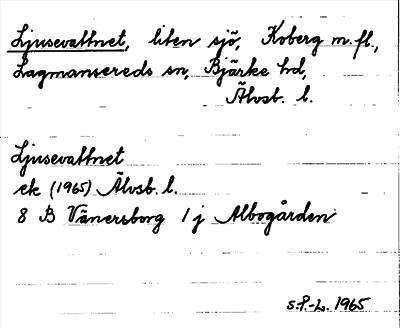 Ljusevattnet, liten sjö, Koberg m.fl.,
Lagmansereds sn, Bjärke hd,
Älvsb. l.
Ljusevattnet
ek (1965) Älvsb. l.
8 B Vänersborg 1 j Albogården
S.P.-L. 1965